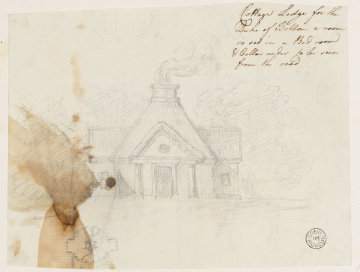 Cottage Lodge for the
Duke of Bolton a room
to eat in a Bed room
& Cellar under to be seen
from the road